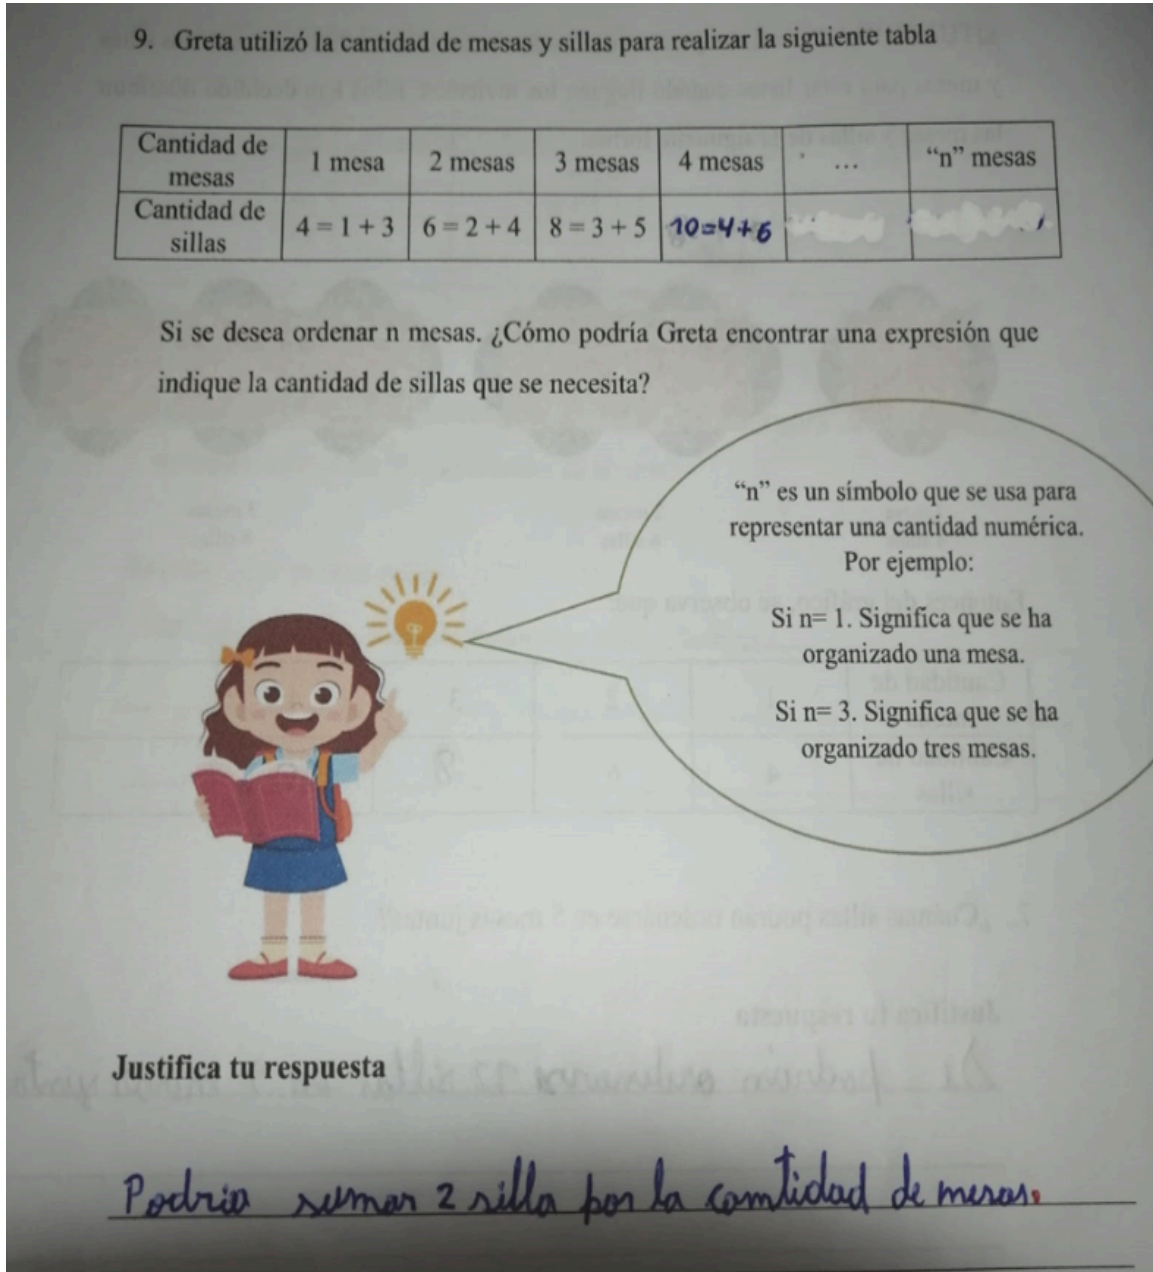 9. Greta utilizó la cantidad de mesas y sillas para realizar la siguiente tabla
Cantidad de mesas 1 mesa 2 mesas 3 mesas 4 mesas ... “n” mesas
Cantidad de sillas 4 = 1 + 3 6 = 2 + 4 8 = 3 + 5 10=4+6
Si se desea ordenar n mesas. ¿Cómo podría Greta encontrar una expresión que
indique la cantidad de sillas que se necesita?
“n” es un símbolo que se usa para
representar una cantidad numérica.
Por ejemplo:
Si n= 1. Significa que se ha
organizado una mesa.
Si n= 3. Significa que se ha
organizado tres mesas.
Justifica tu respuesta
Podria sumar 2 silla por la cantidad de mesas.